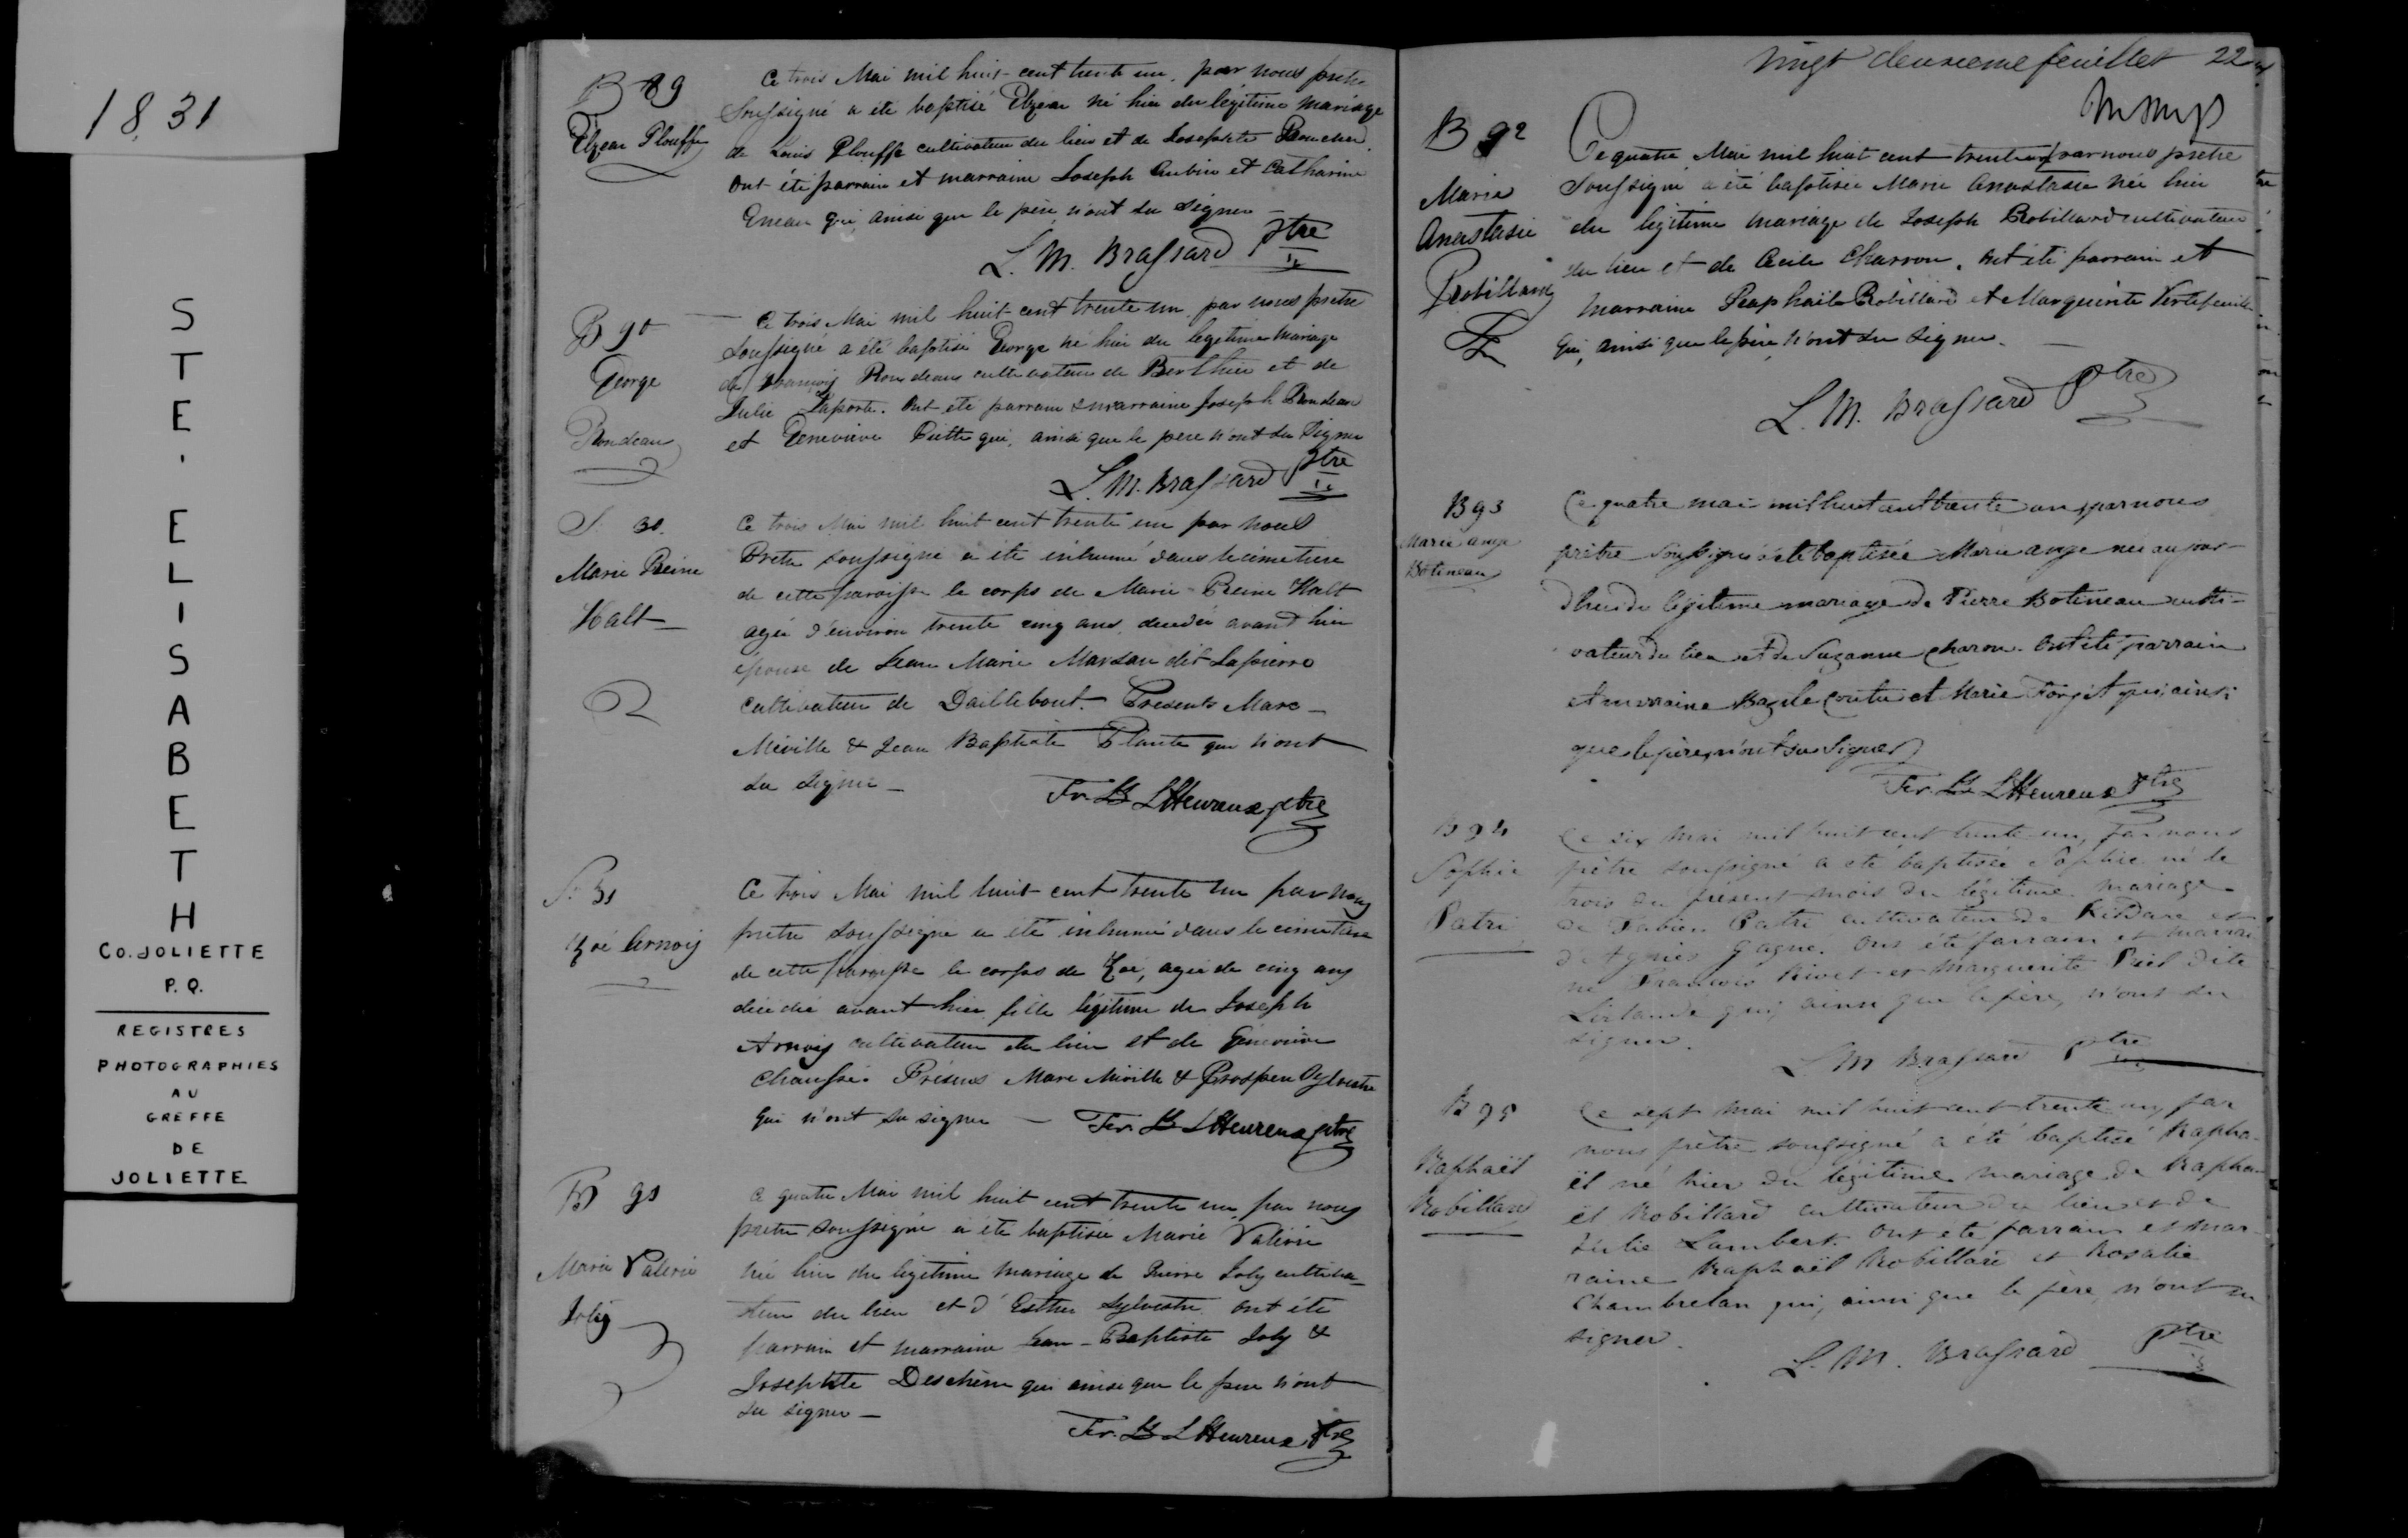 1831
STE. ELISABETH
CO. JOLIETTE
P. Q.
REGISTRES
PHOTOGRAPHIES
AU
GREFFE
DE
JOLIETTE
B 89
Elzear Plouffe
Ce trois Mai mil huit-cent trente un, par nous pretre
soussigné a été baptisé Elzéar né hier du légitime mariage
de Louis Plouffe cultivateur du lieu et de Josephte Boucher.
Ont été parrain et marraine Joseph Aubin et Catharine
qui, ainsi que le père, n'ont su signer —
L. M. Brassard Ptre
B 90
George
Rondeau
Ce trois Mai mil huit-cent trente un, par nous prêtre
soussigné a été baptisé George né hier du legitime mariage
de François Rondeau cultivateur de Berthier et de
Julie Laporte. Ont été parrain & marraine Joseph Rondeau
et Genevieve Piette qui, ainsi que le père n'ont su signer
L. M. Brassard Ptre
S. 30.
Marie Reine
Halt —
Ce trois Mai mil huit cent trente un par nous
Pretre soussigné a été inhumé dans le cimetiere
de cette paroisse le corps de Marie-Reine Halt
agée d'environ trente cinq ans, decedée avant hier
épouse de Jean Marie Marsan dit Lapierre
cultivateur de Daillebout. Presents Marc
Miville & Jean Baptiste Plante qui n'ont
su signer —
Fr. LHeureux ptre
S. 31
Zoé Arnois
Ce trois Mai mil huit-cent trente un par nous
pretre soussigné a été inhumé dans le cimetiere
de cette paroisse le corps de Zoé, agée de cinq ans
décédée avant hier fille légitime de Joseph
Arnois cultivateur du lieu et de Généviève
Chaussé. Présens Marc Miville & Prosper Sylvestre
qui n'ont su signer — Fr. LHeureux ptre
B 91
Marie Valerie
Joly
Ce quatre Mai mil huit cent trente un, par nous
pretre soussigné a été baptisée Marie Valérie
née hier du légitime mariage de Pierre Joly cultiva-
teur du lieu et d'Esther Sylvestre. Ont été
parrain et marraine Jean-Baptiste Joly &
Josephte Deschêne qui ainsi que le père n'ont
su signer —
Fr. LHeureux Ptre
Vingt deuxieme feuillet 22
B 92
Marie
Anastasie
Robillard
Ce quatre Mai mil huit cent trente un par nous prêtre
soussigné a été baptisée Marie Anastasie née hier
du légitime mariage de Joseph Robillard cultivateur
du lieu et de Cécile Charron. Ont été parrain et
marraine Raphaile Robillard et Marguerite Vertefeuille
qui, ainsi que le père, n'ont su signer. —
L. M. Brassard Ptre
B 93
Marie ange
Botineau
Ce quatre mai mil huit cent trente un, par nous
prêtre soussigné a été baptisée Marie ange née aujour-
dhui du légitime mariage de Pierre Botineau culti-
vateur du lieu et de Suzanne Charon. Ont été parrain
et marraine Bazile Coutu et Marie Forget qui, ainsi
que le père, n'ont su signer
Fr. LHeureux Ptre
B 94
Sophie
Patri
Ce six mai mil huit cent trente-un, par nous
prêtre soussigné a été baptisée Sophie né le
trois du présent mois du légitime mariage
de Fabien Patri cultivateur de Kildare et
d'Agnès Gagné. Ont été parrain et marrai-
ne François Rivet et Marguerite Riel dite
Lirlande qui, ainsi que le père, n'ont su
signer.
L M Brassard Ptre
B 95
Raphaël
Robillard
Ce sept mai mil huit cent trente un, par
nous prêtre soussigné a été baptisé Rapha-
ël né hier du légitime mariage de Rapha-
ël Robillard cultivateur du lieu et de
Julie Lambert. Ont été parrain et mar-
raine Raphaël Robillard et Rosalie
Chambrelan qui, ainsi que le père, n'ont su
signer.
L. M. Brassard Ptre